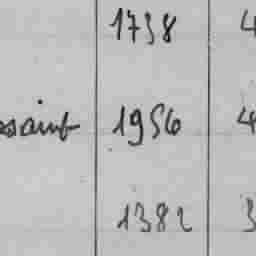 1738 4
ssaint 1956 4
1382 3